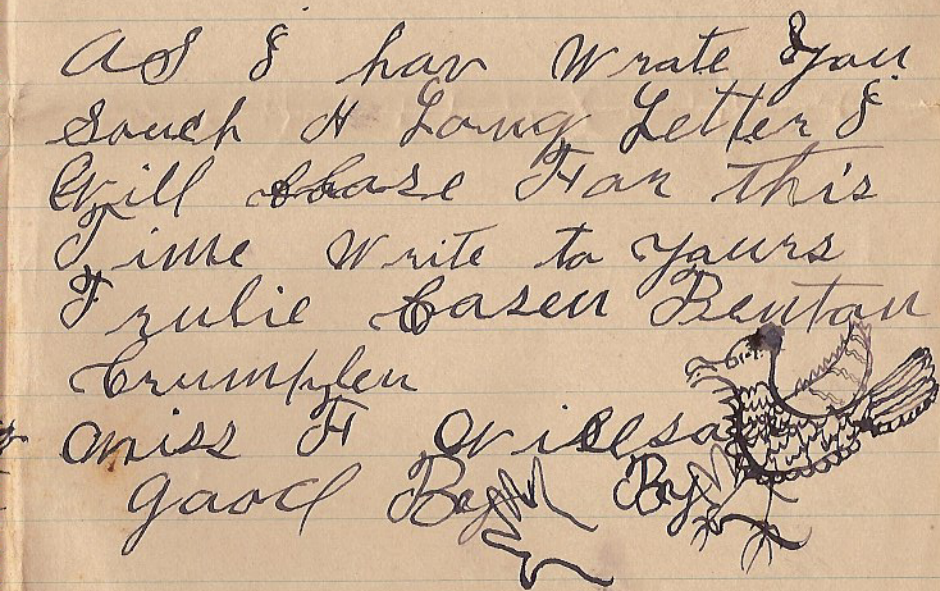 AS I hav Wrate You
Souch A Long Letter I
Will Close For this
Time Write to yours
Trulie Casen Benton
Crumplen
Miss F
Good By By